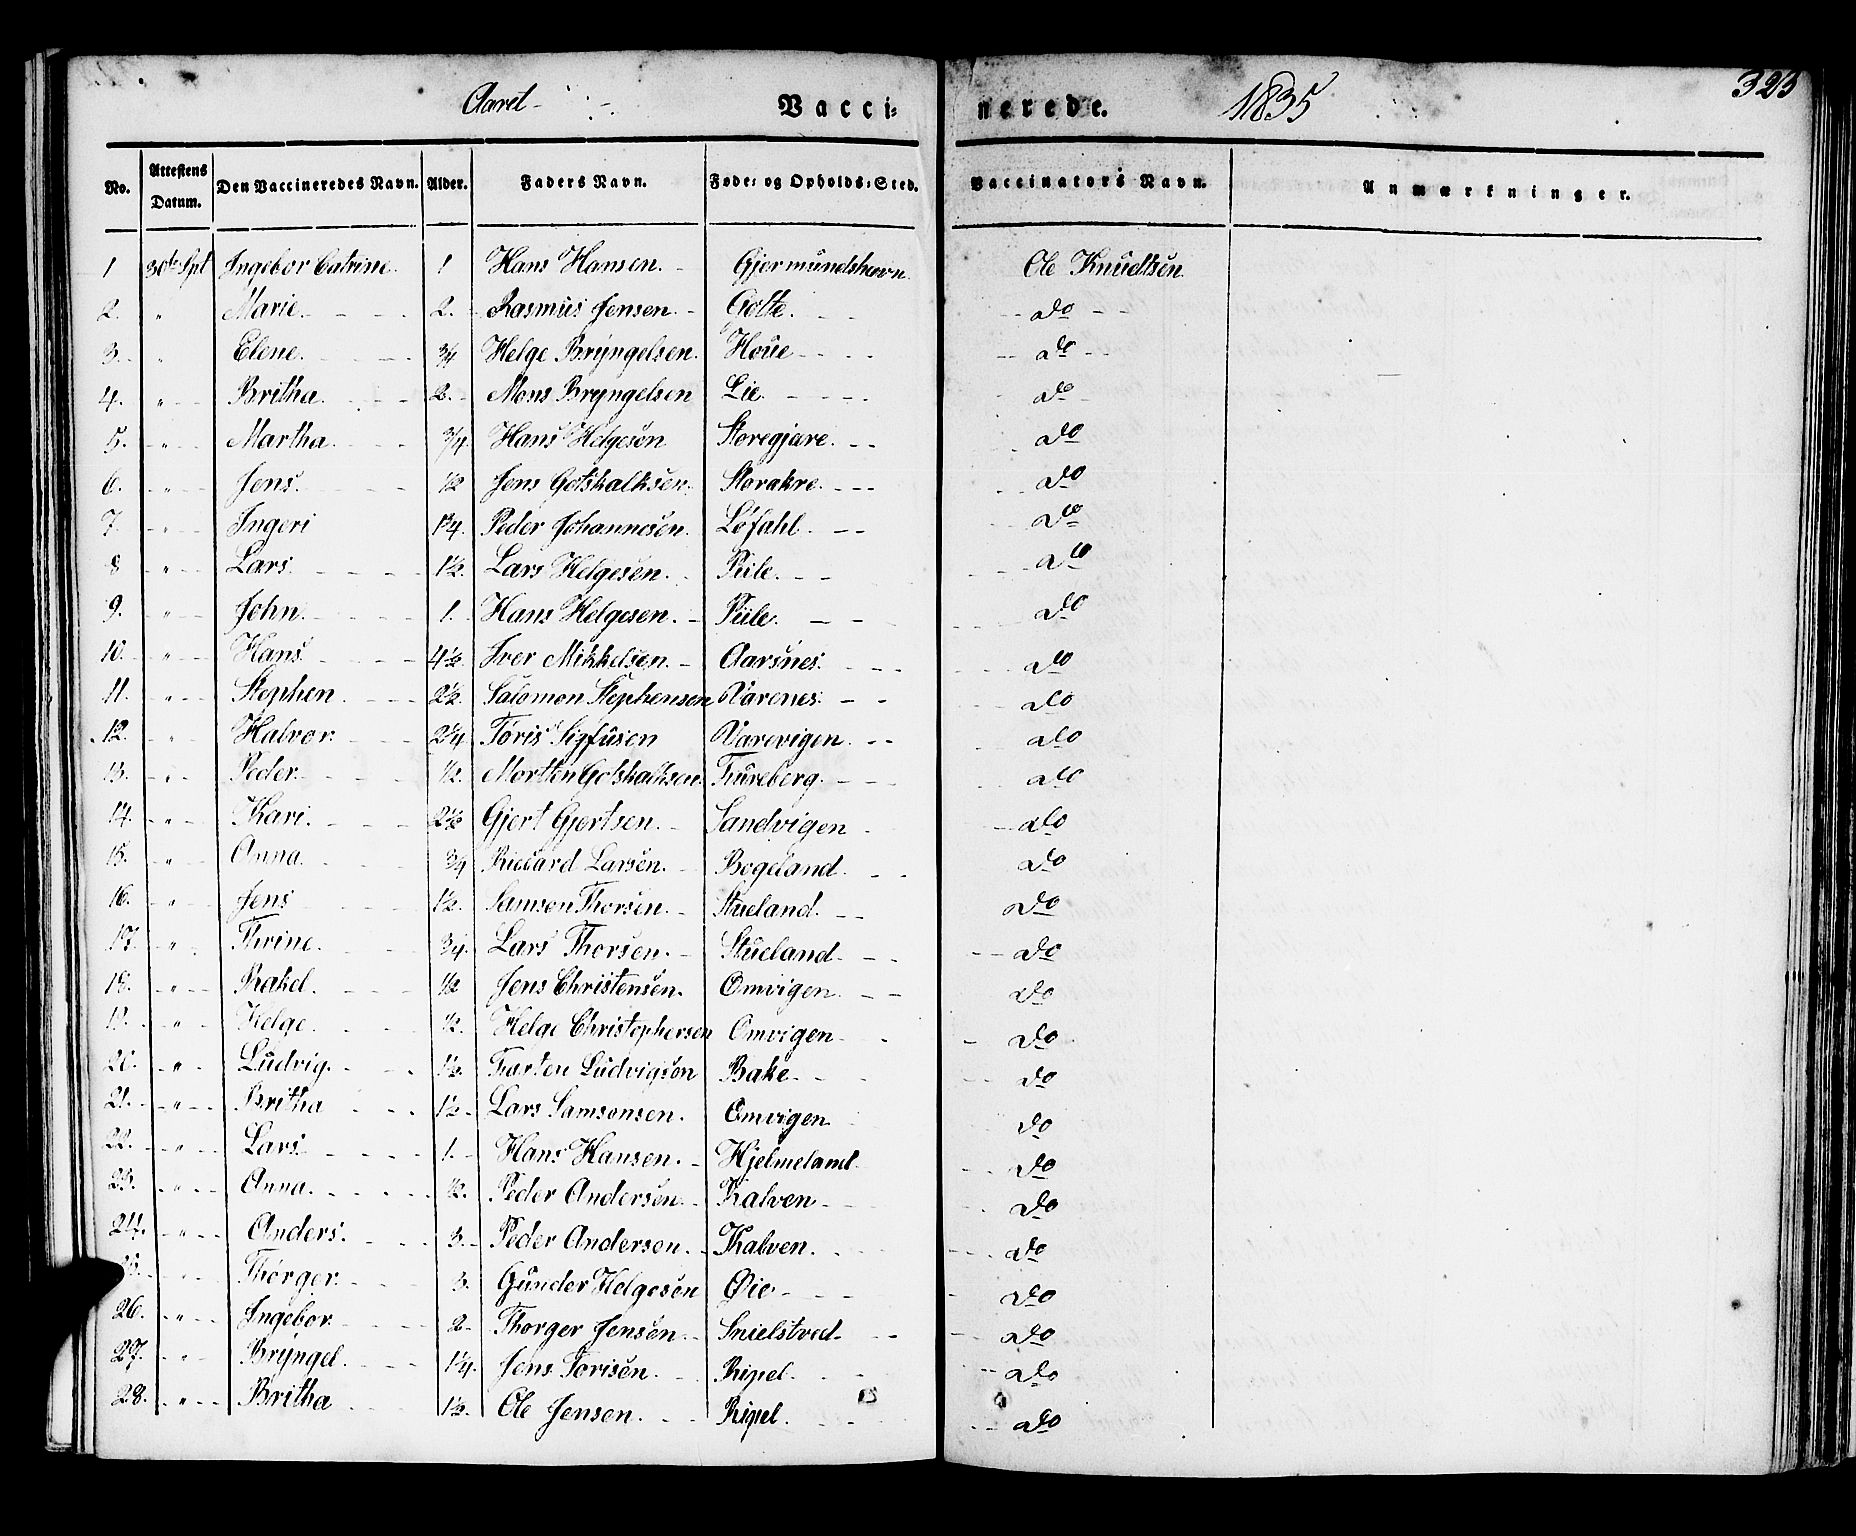 323
Aaret Vaccinerede. 1835
No. Attestens Datum. Den Vaccineredes Navn. Alder. Faders Navn. Føde- og Opholds-Sted. Vaccinators Navn. Anmærkninger.
1 30te Spt Ingebor Catrine. 1 Hans Hansen. Gjermundshavn Ole Knudtsen
2. " Marie 2. Rasmus Jensen. Golte. do
3. " Elene. 3/4 Helge Bryngelsen. Houe do
4. " Britha. 2. Mons Bryngelsen Lie. do
5. " Martha. 3/4. Hans Helgesen Storegjære. do
6. " Jens. 1/2 Jens Gotskalksen. Storakre. do
7. " Ingeri 1 3/4. Peder Johannesen. Løfahl. do
8 " Lars. 1 1/2. Lars Helgesen. Püle. do
9. " John. 1. Hans Helgesen. Püle. do
10. " Hans. 4 1/2. Iver Mikkelsen. Aarsnes. do
11. " Stephen 2 1/2. Salomon Stephensen Varenes. do
12. " Halvor. 2 1/4. Tøris Sigfusen Varevigen. do
13. " Peder 1/2. Morten Gotskalksen. Fureberg. do
14. " Kari. 2 1/2 Gjert Gjertsen. Sandvigen do
15. " Anna. 3/4 Riccard Larsen. Bogeland. do
16. " Jens 1 1/2. Samson Thorsen. Stueland. do
17. " Thrine. 3/4. Lars Thorsen. Stueland. do
18. " Rakel. 1/2 Jens Christensen. Omvigen. do
19. " Helge. 1/2. Helge Christophersen Omvigen. do
20. " Ludvig. 1 1/2. Torsten Ludvigsen Bake. do
21. " Britha 1 1/2. Lars Samsonsen. Omvigen do
22. " Lars. 1. Hans Hansen. Hjelmeland. do
23. " Anna. 1/2. Peder Andersen. Kalven do
24. " Anders. 3. Peder Andersen. Kalven. do
25. " Thorger. 3. Gunder Helgesen Øie do
26. " Ingebor. 2. Thorger Jensen. Snielstved do
27. " Bryngel. 1 1/4. Jens Torisen. Ripel. do
28. " Britha 1 1/2. Ole Jensen. Ripel. do